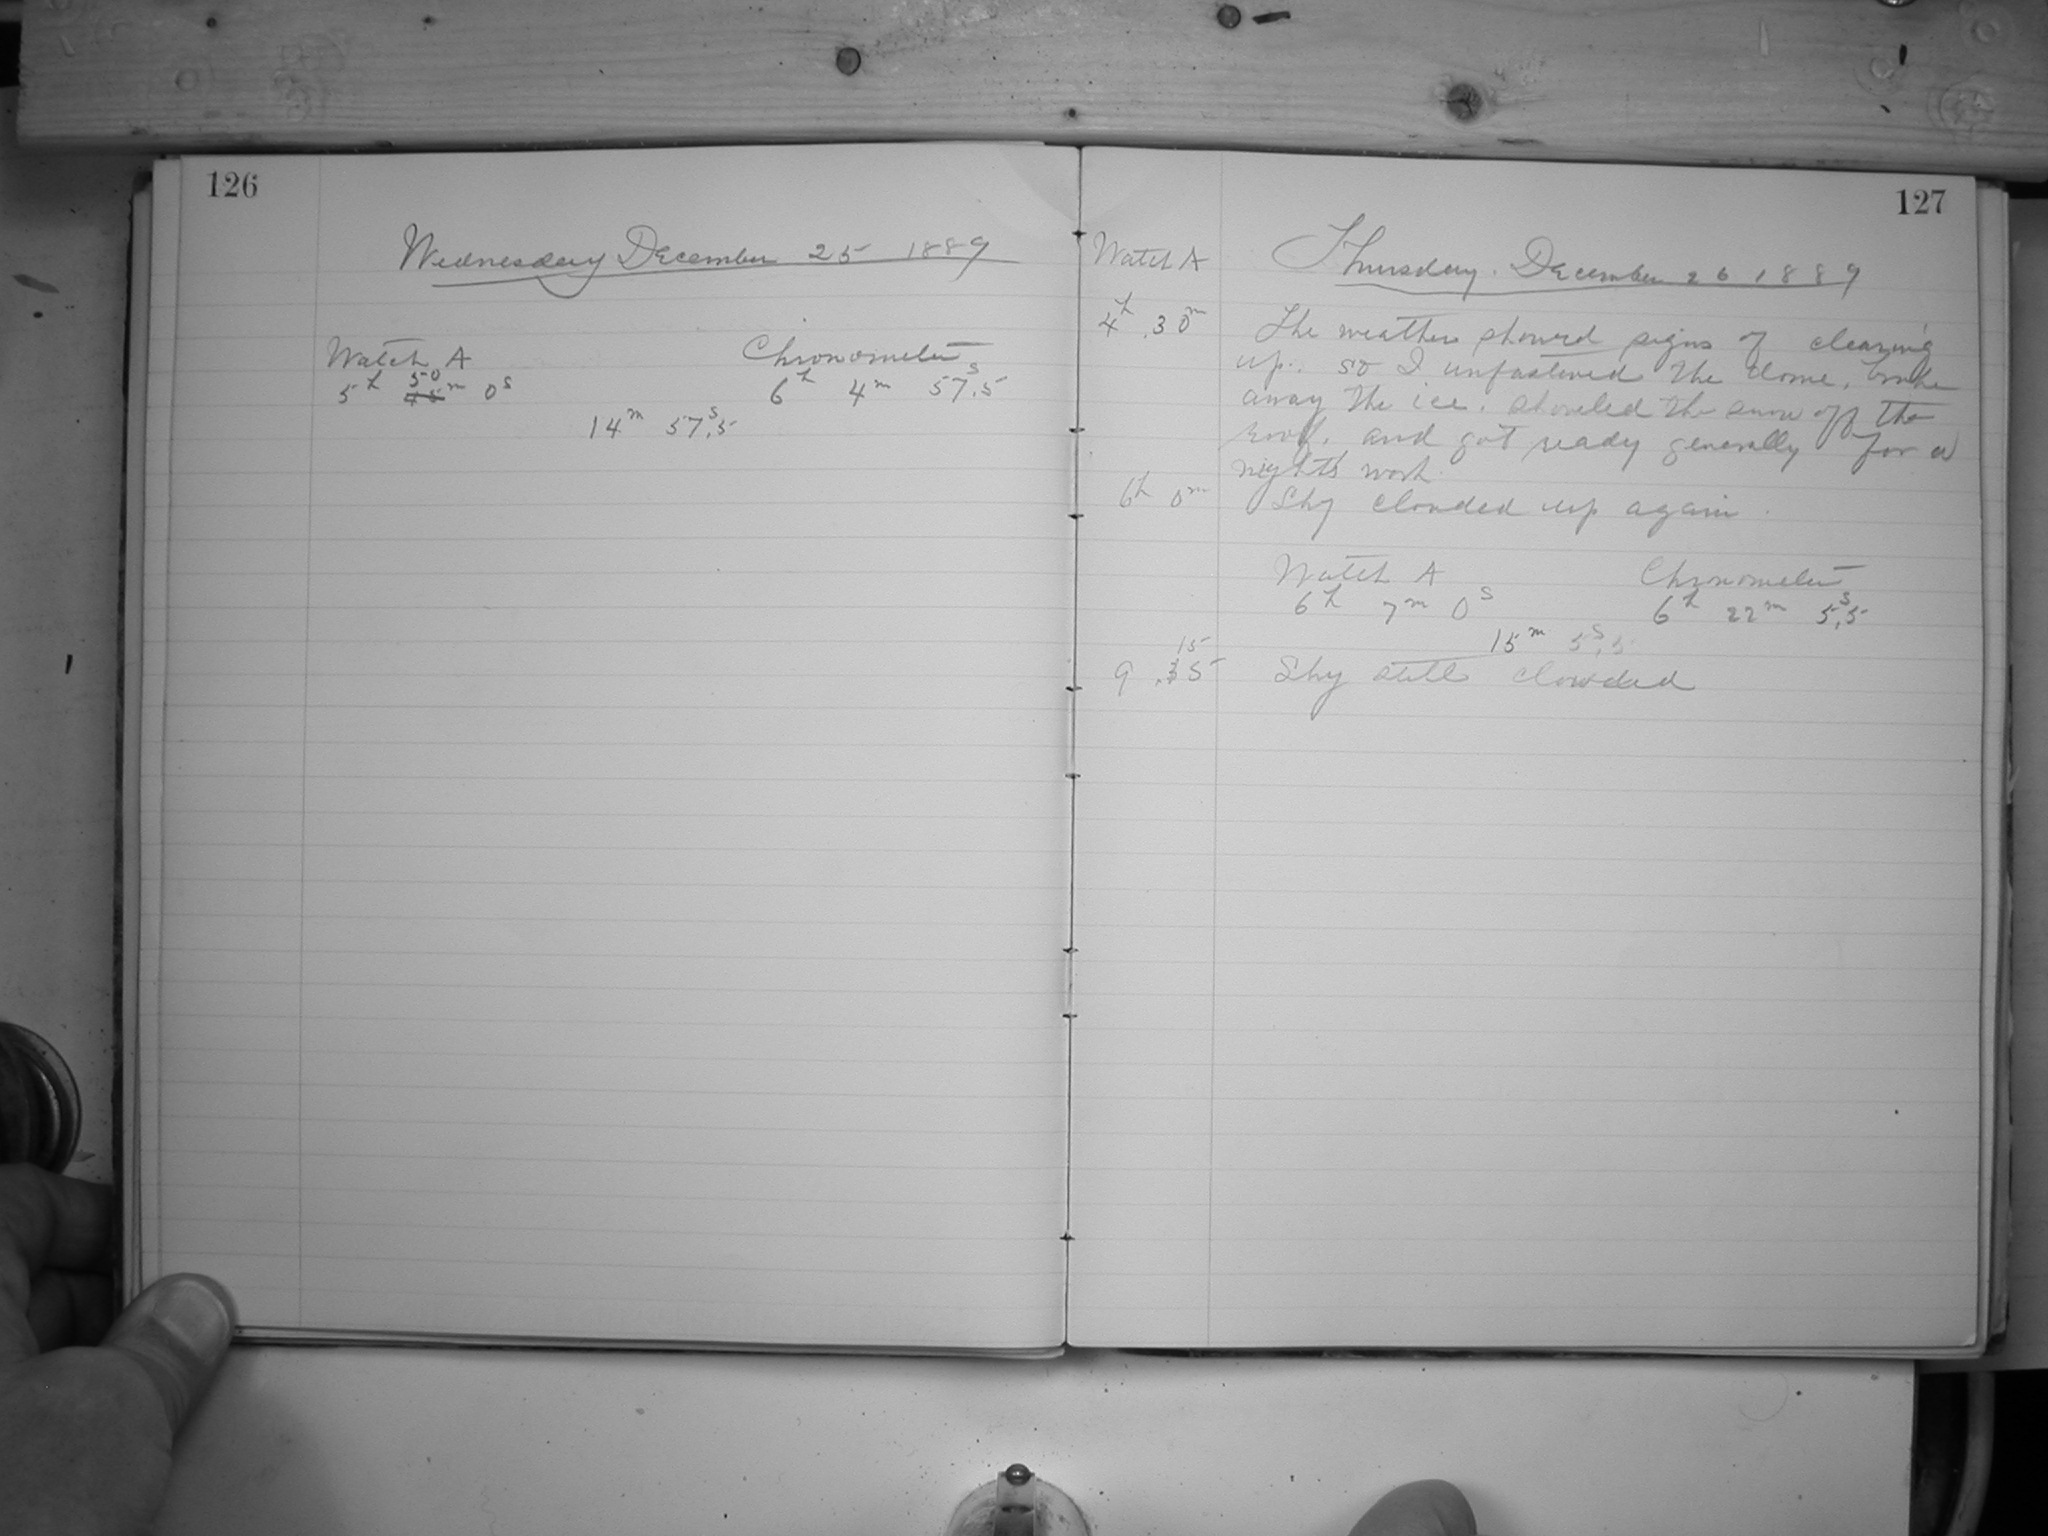 126
Wednesday December 25 1889
Watch A Chronometer
50
5h 45m 0s 6h 4m 57.5s
14m 57.5s
127
Watch A Thursday. December 26 1889
4h.30m The weather showed signs of clearing
up. so I unfastened the dome, broke
away the ice. shoveled the snow off the
roof. and got ready generally for a
night's work.
6h 0m Sky clouded up again.
Watch A Chronometer
6h 7m 0s 6h 22m 5.5s
15m 5.5s
15
9 Sky still clouded